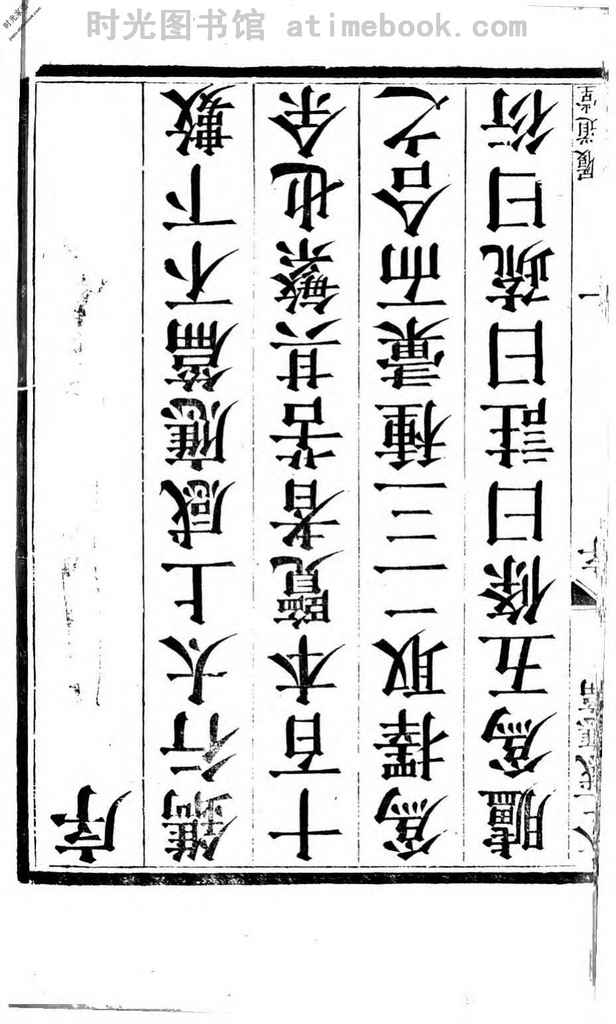 时光图书馆 atimebook.com
序
行太上感應篇不下數
十百本覽者苦其繁也余
為擇取二三種彙而合之
臚為五條曰註曰疏曰衍
序
一
履道堂